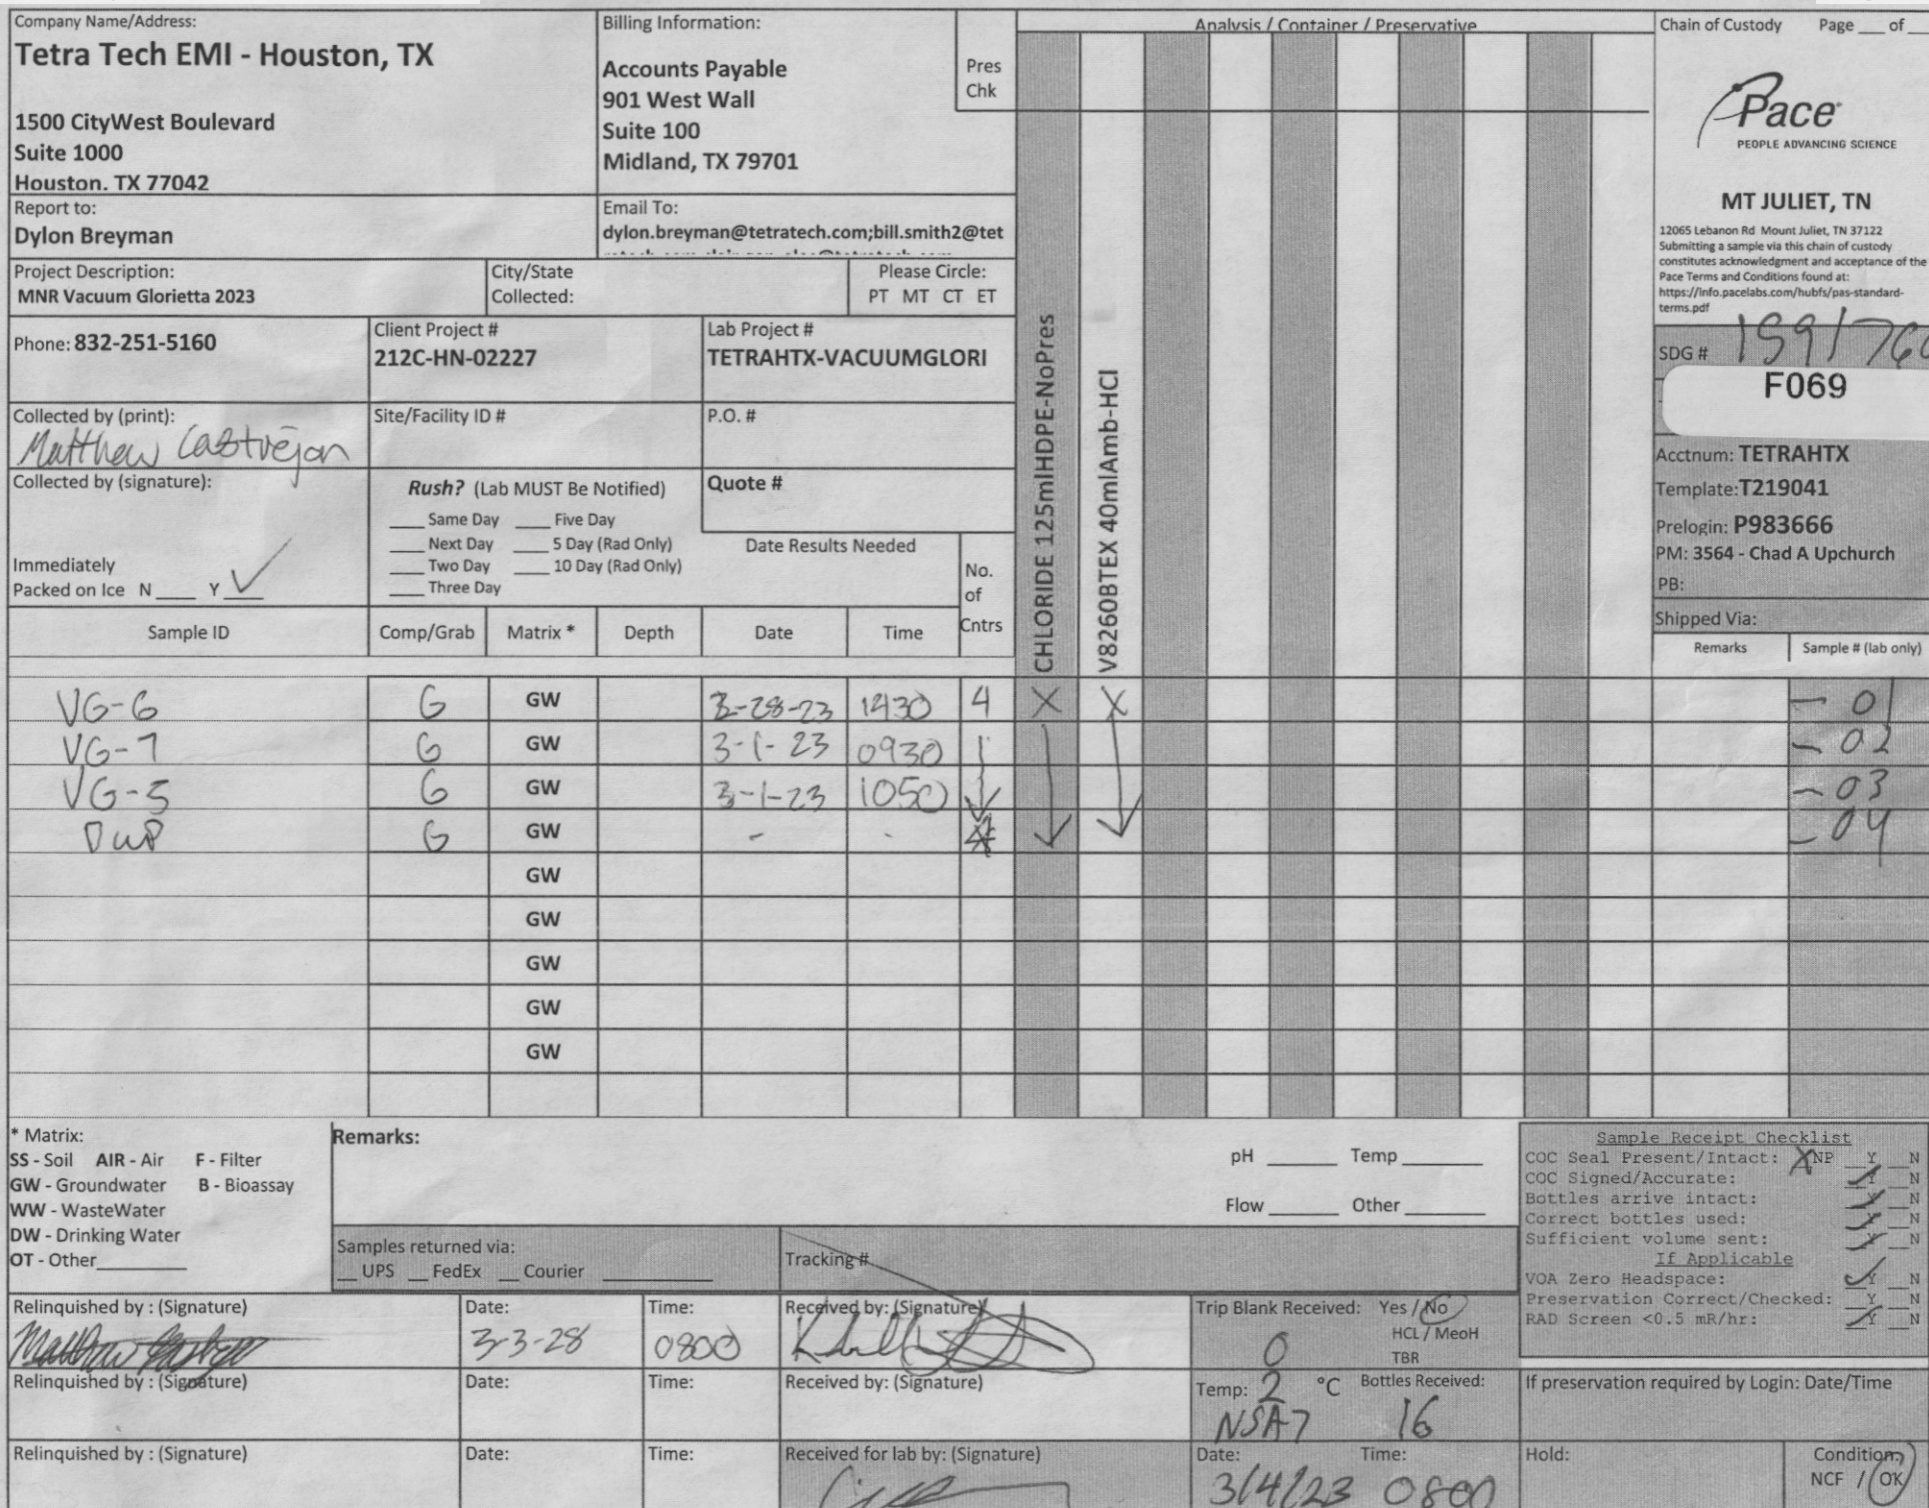 Company Name/Address:
Tetra Tech EMI - Houston, TX
1500 CityWest Boulevard
Suite 1000
Houston. TX 77042
Billing Information:
Accounts Payable
901 West Wall
Suite 100
Midland, TX 79701
Pres
Chk
Analysis / Container / Preservative
Chain of Custody Page ___ of ___
Pace
PEOPLE ADVANCING SCIENCE
MT JULIET, TN
12065 Lebanon Rd Mount Juliet, TN 37122
Submitting a sample via this chain of custody
constitutes acknowledgment and acceptance of the
Pace Terms and Conditions found at:
https://info.pacelabs.com/hubfs/pas-standard-
terms.pdf
Report to:
Dylon Breyman
Email To:
dylon.breyman@tetratech.com;bill.smith2@tet
Project Description:
MNR Vacuum Glorietta 2023
City/State
Collected:
Please Circle:
PT MT CT ET
Phone: 832-251-5160
Client Project #
212C-HN-02227
Lab Project #
TETRAHTX-VACUUMGLORI
SDG # 159176
F069
Collected by (print):
Matthew Castrejon
Site/Facility ID #
P.O. #
Acctnum: TETRAHTX
Template:T219041
Prelogin: P983666
PM: 3564 - Chad A Upchurch
PB:
Shipped Via:
Collected by (signature):
Rush? (Lab MUST Be Notified)
___ Same Day ___ Five Day
___ Next Day ___ 5 Day (Rad Only)
___ Two Day ___ 10 Day (Rad Only)
___ Three Day
Quote #
Date Results Needed
Immediately
Packed on Ice N ___ Y ✓
No.
of
Cntrs
CHLORIDE 125mlHDPE-NoPres
V8260BTEX 40mlAmb-HCl
Sample ID Comp/Grab Matrix * Depth Date Time Remarks Sample # (lab only)
VG-6 G GW 3-28-23 1430 4 X X - 01
VG-7 G GW 3-1-23 0930 - 02
VG-5 G GW 3-1-23 1050 - 03
DUP G GW - - - 04
GW
GW
GW
GW
GW
* Matrix:
SS - Soil AIR - Air F - Filter
GW - Groundwater B - Bioassay
WW - WasteWater
DW - Drinking Water
OT - Other
Remarks:
pH ___ Temp ___
Flow ___ Other ___
Samples returned via:
__ UPS __ FedEx __ Courier
Tracking #
Sample Receipt Checklist
COC Seal Present/Intact: X NP _Y _N
COC Signed/Accurate: ✓Y _N
Bottles arrive intact: ✓Y _N
Correct bottles used: ✓Y _N
Sufficient volume sent: ✓Y _N
If Applicable
VOA Zero Headspace: ✓Y _N
Preservation Correct/Checked: _Y _N
RAD Screen <0.5 mR/hr: ✓Y _N
Relinquished by : (Signature)
Date:
3-3-28
Time:
0800
Received by: (Signature)
Trip Blank Received: Yes / No
0
HCL / MeoH
TBR
Relinquished by : (Signature)
Date:
Time:
Received by: (Signature)
Temp: 2 °C Bottles Received:
NSA7 16
If preservation required by Login: Date/Time
Relinquished by : (Signature)
Date:
Time:
Received for lab by: (Signature)
Date: Time:
3/4/23 0800
Hold:
Condition:
NCF / OK